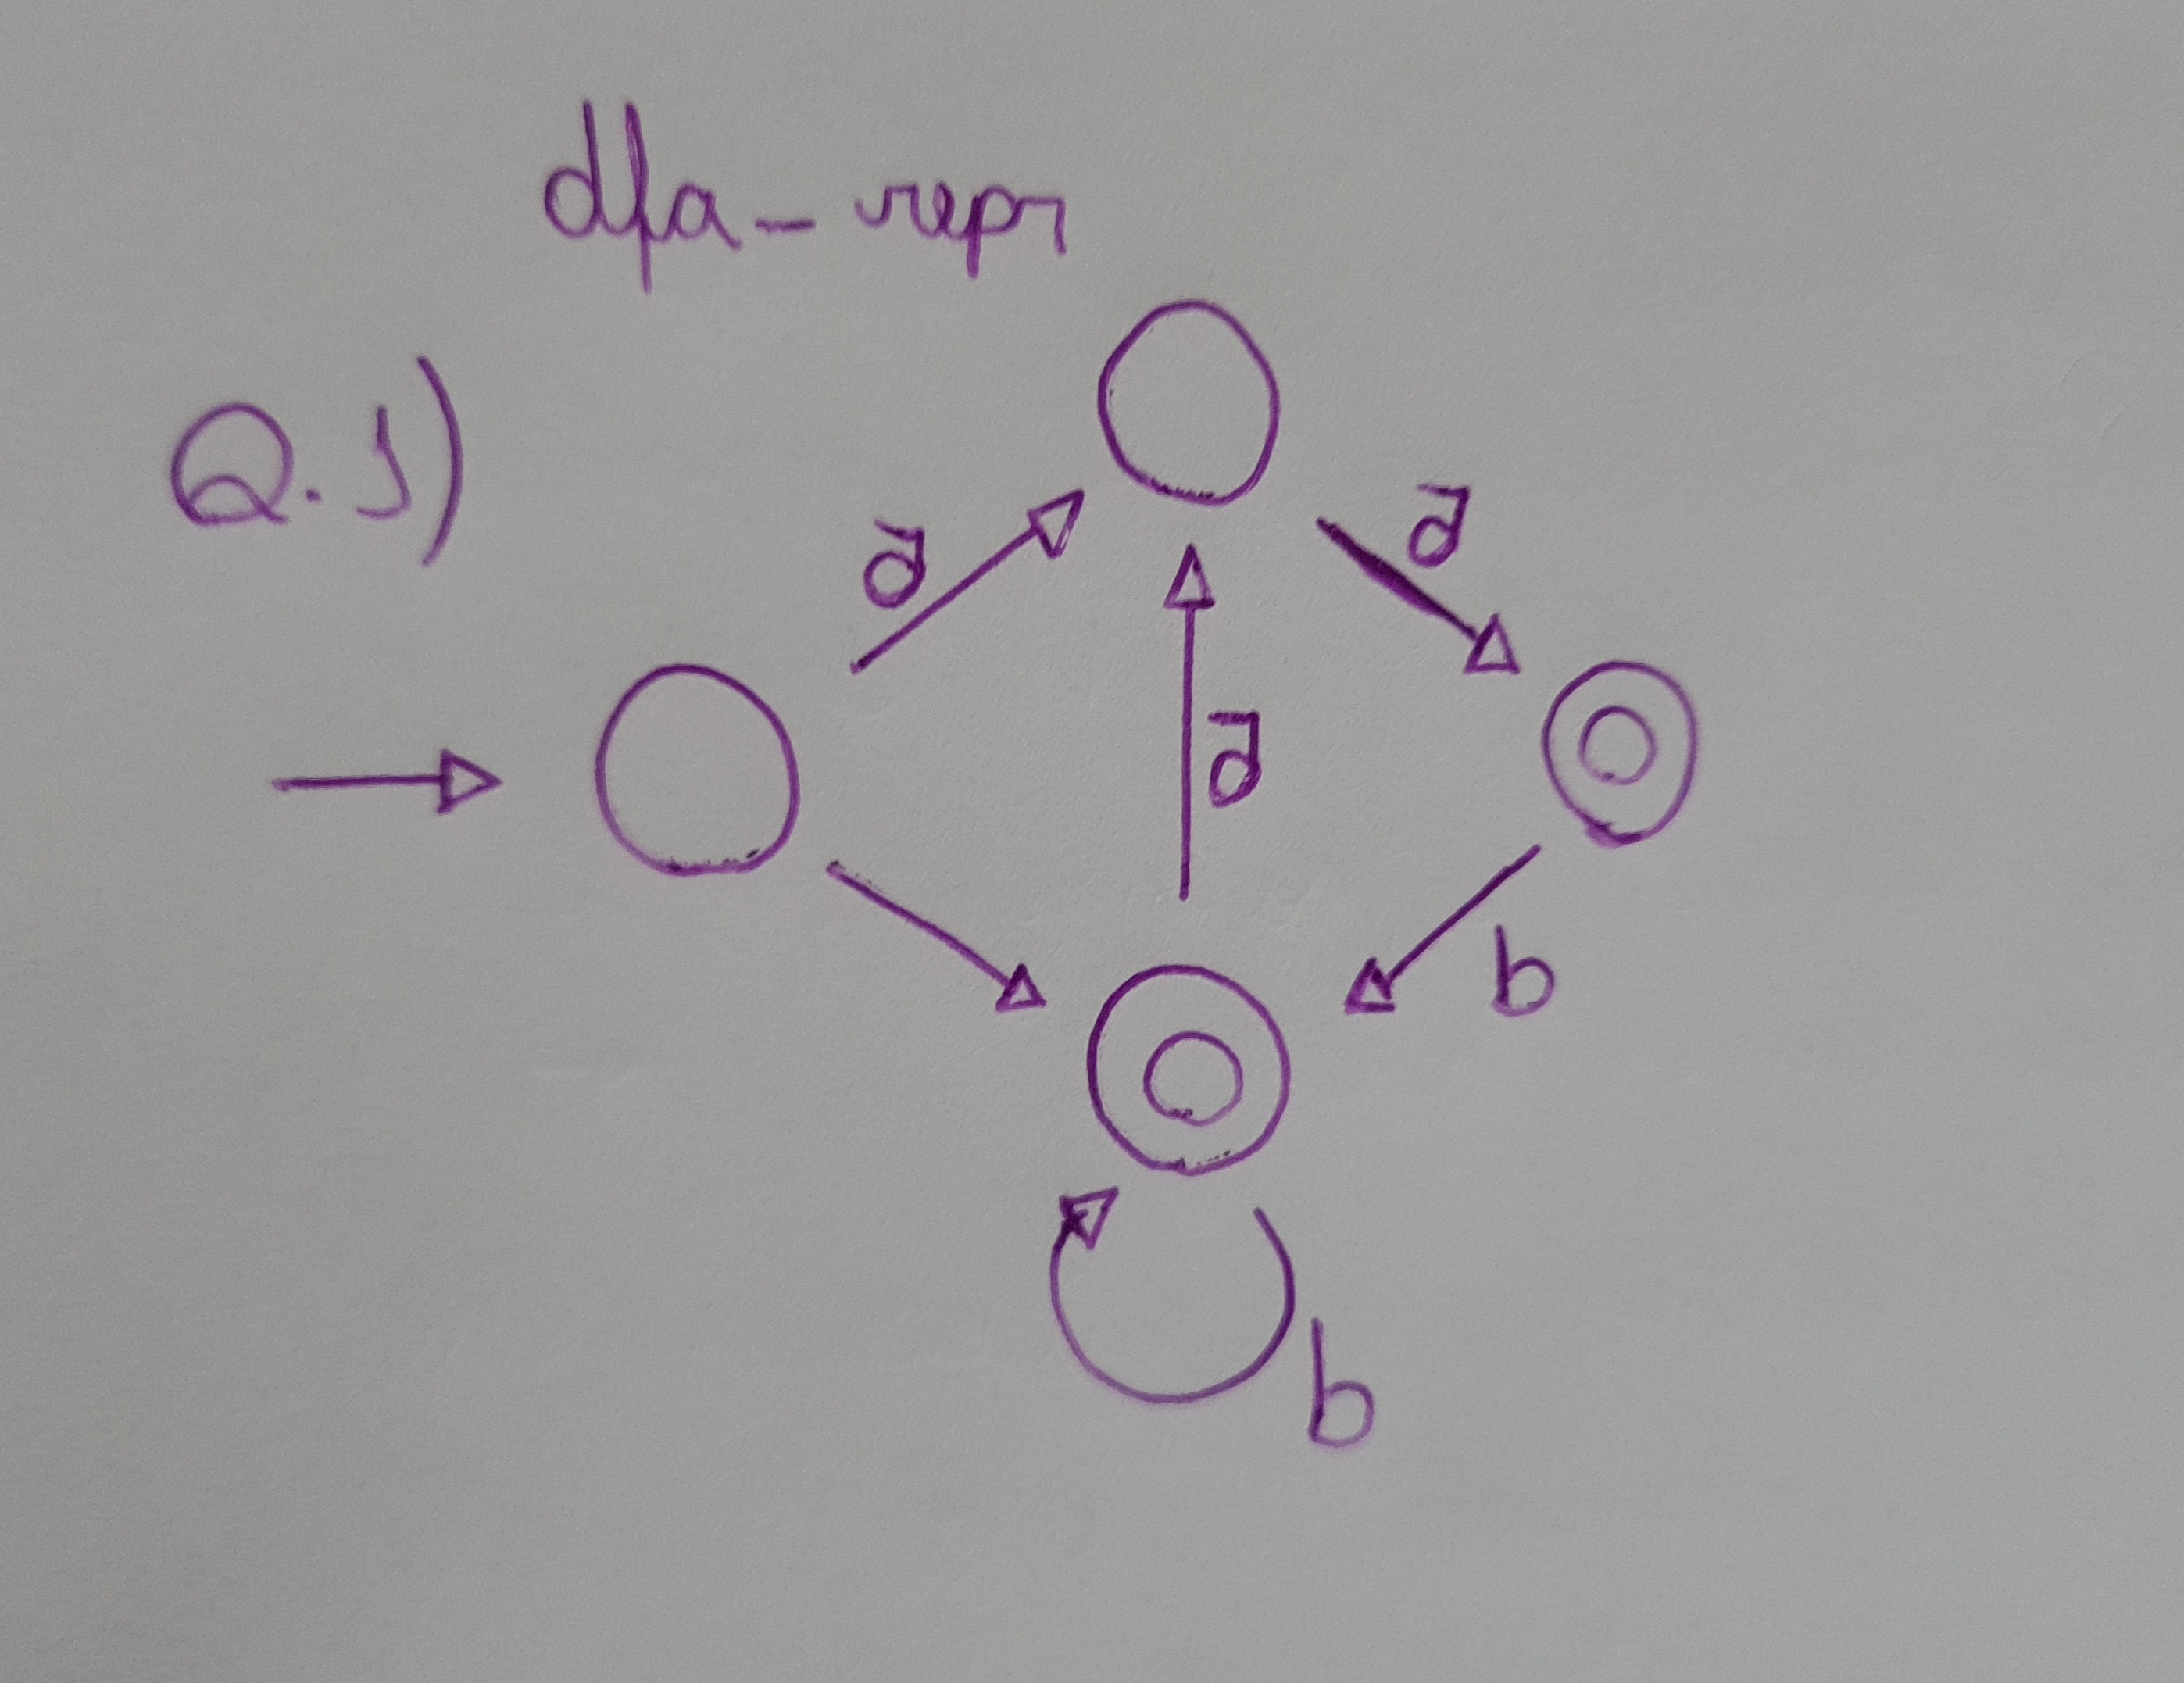 dfa-repr
Q.1)
a
a
a
b
b